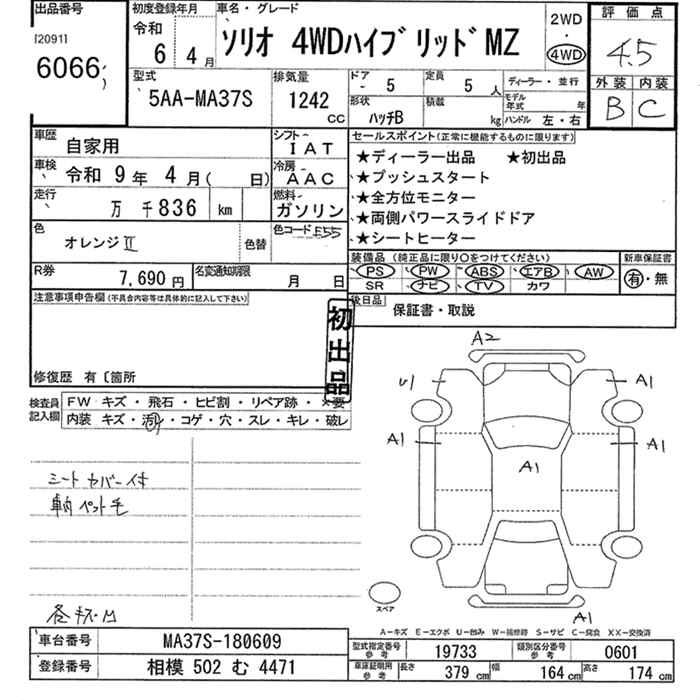 出品番号
[20911
6066
初度登録年月
令和
6年 4月
車名・グレード
ソリオ 4WDハイブリッドMZ
2WD
・
4WD
評価点
4.5
外装 内装
B C
型式
5AA-MA37S
排気量
1242
CC
ドア
- 5
定員
5人
形状
ハッチB
積載
kg
ディーラー・並行
モデル年式 年
ハンドル 左・右
車歴
自家用
シフト
IAT
車検
令和 9年 4月( 日)
冷房
AAC
走行
万 千836 km
燃料
ガソリン
色
オレンジⅡ
色替
色コード E55
R券
7,690円
名変通知期限
月 日
セールスポイント(正常に機能するものに限ります)
★ディーラー出品 ★初出品
★プッシュスタート
★全方位モニター
★両側パワースライドドア
★シートヒーター
装備品 (純正品に限り○をつけてください)
PS PW ABS エアB AW
SR ナビ TV カワ
新車保証書
有・無
後日品
保証書・取説
注意事項申告欄(不具合内容等は具体的に記入して下さい)
初出品
修復歴 有〔箇所
検査員記入欄
FW キズ・飛石・ヒビ割・リペア跡・×要
内装 キズ・汚れ・コゲ・穴・スレ・キレ・破レ
シートカバー付
車内ペット毛
A2
U1
A1
A1
A1
A1
A1
スペア
A-キズ E-エクボ U-凹み W-補修跡 S-サビ C-腐食 XX-交換済
車台番号
MA37S-180609
登録番号
相模 502 む 4471
型式指定番号
参考
19733
類別区分番号
参考
0601
車庫証明用
参考
長さ 379 cm
幅 164 cm
高さ 174 cm